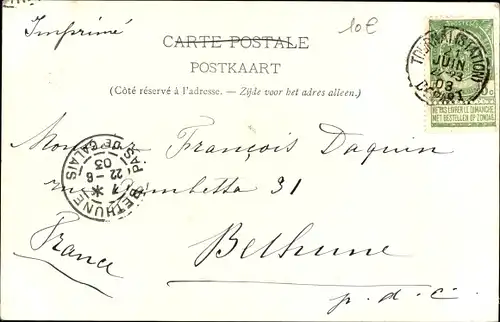 10€
Imprimé
CARTE POSTALE
POSTKAART
(Côté réservé à l'adresse. — Zijde voor het adres alleen.)
TOURNAI (STATION)
JUIN
03
DÉPART
NE PAS LIVRER LE DIMANCHE
NIET BESTELLEN OP ZONDAG
Monsieur François Daquin
rue Gambetta 31
BETHUNE
PAS DE CALAIS
22 - 6
03
Bethune
France
p. d. C.